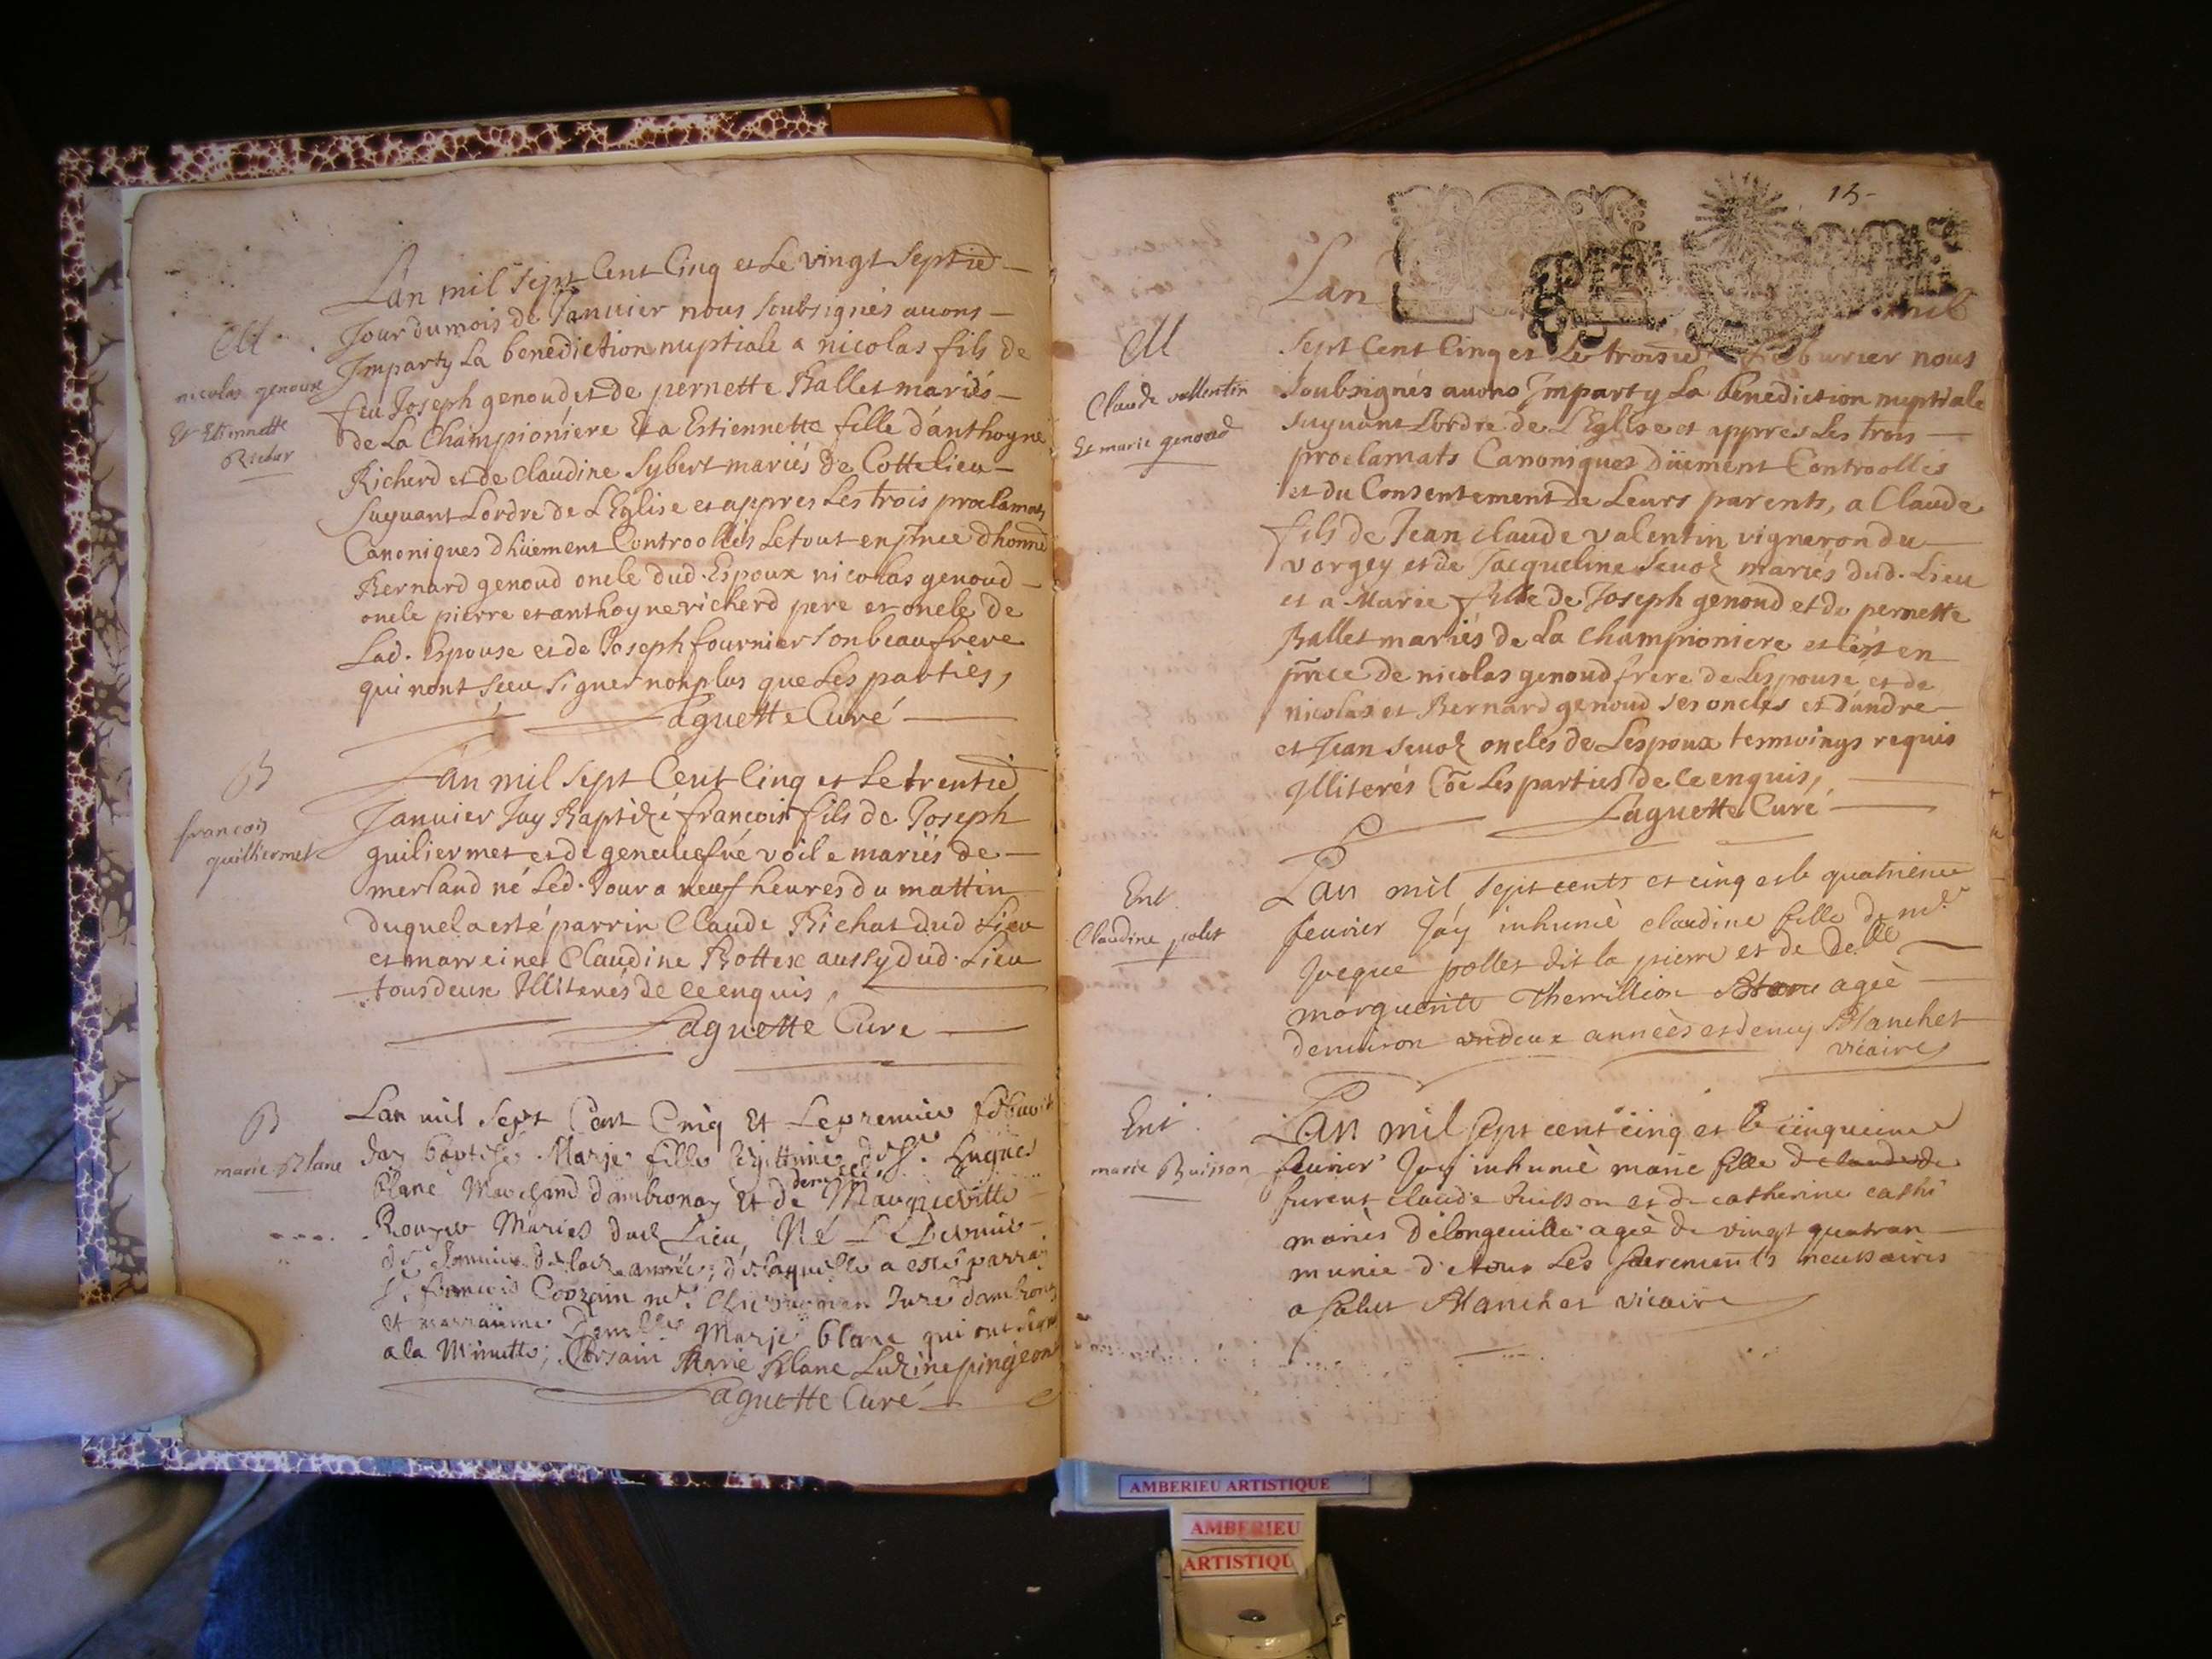 M
nicolas genoux
Et Etiennette
Richar
Lan mil sept Cent Cinq et Le vingt septie
Jour du mois de Januier nous soubsignés auons
Imparty La benediction nuptiale a nicolas fils de
feu Joseph genoud et de pernette Ballet mariés
de La Championiere Et a Estiennette fille d'anthoyne
Richerd et de Claudine Sybert mariés de Cottelieu
suyuant Lordre de L'Eglise et appres Les trois proclamats
Canoniques dhüement Controollés Le tout en pnce dhonne
Bernard genoud oncle dud. Espoux nicolas genoud
oncle pierre et anthoyne richerd pere et oncle de
Lad. Espouse et de Joseph fournier son beaufrere
qui nont sceu signer non plus que Les parties,
Laguette Curé
B
francois
guilliermet
Lan mil sept Cent Cinq et Le trentie
Januier Jay Baptizé francois fils de Joseph
guiliermet et de geneuiefue voile mariés de
merland né Led. Jour a neuf heures du mattin
duquel a esté parrin Claude Richat dud Lieu
et marreine Claudine Bottex aussy dud. Lieu
tous deux Illiterés de ce enquis,
Laguette Cure
B
marie Blanc
Lan mil sept Cent Cinq Et Le premier
Jay baptisé Marje fille legittime de Sr. Hugues
blanc Marchand dambronay Et de Margueritte
Mariés dud Lieu, Né Le Dernier
de Januier de lad. année; de laquelle a esté parrain
Sr. francois Corsain Juré dambronay
et marraine Marje blanc qui ont signé
a la Minutte; Corsain Marie Blanc
Laguette Curé
13
M
Claude vallentin
Et marie genoud
Lan mil
sept Cent Cinq et Le troisie feburier nous
soubsignés auons Imparty La benediction nuptiale
suyuant Lordre de L'Eglise et appres Les trois
proclamats Canoniques düement Controollés
et du Consentement de Leurs parents, a Claude
fils de Jean claude valentin vigneron du
vorgey et de Jacqueline mariés dud. Lieu
et a Marie fille de Joseph genoud et de pernette
Ballet mariés de La Championiere et C'est en
pnce de nicolas genoud frere de Lespouse et de
nicolas et Bernard genoud ses oncles et d'andre
et Jean oncles de Lespoux termoings requis
Illiterés Coe Les parties de ce enquis,
Laguette Curé
Ent.
Claudine polet
Lan mil sept cents et cinq et le quatrieme
feurier Jáy inhumè claudine fille de mr.
Jacque pollet dit la pierre et de delle
marguerite Therrillion agèe
denuiron deux annèes et demy Blanchet
vicaire
Ent.
marie Buisson
Lan mil sept cent cinq et le cinquieme
feurier Jay inhumè marie fille de claude de
furent claude buisson et de catherine
mariès de longeuille agèe de vingt quatr an
munie de tous Les sacrements necessaires
a salut Blanchet vicaire
AMBERIEU ARTISTIQUE
AMBERIEU
ARTISTIQU